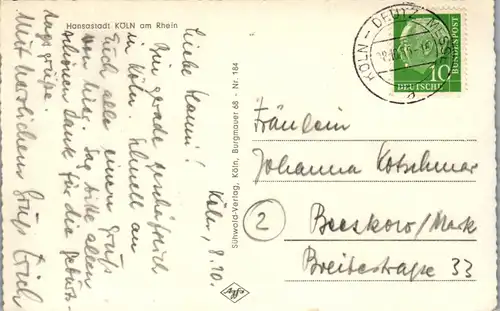 Hansastadt KÖLN am Rhein
Köln, 8.10.
Liebe Hanni!
Bin gerade geschäftlich
in Köln. Schnell an
Euch alle einen Gruß
von hier. Sag bitte allen
schönen Dank für die Geburts-
tagsgrüße.
Mit herzlichem Gruß Erich
Sühwold-Verlag, Köln, Burgmauer 68 - Nr. 184
Agfa
KÖLN - DEUTZ MESSE
10
DEUTSCHE
BUNDESPOST
Fräulein
Johanna Kotschmar
2
Beeskow/Mark
Breitestraße 33